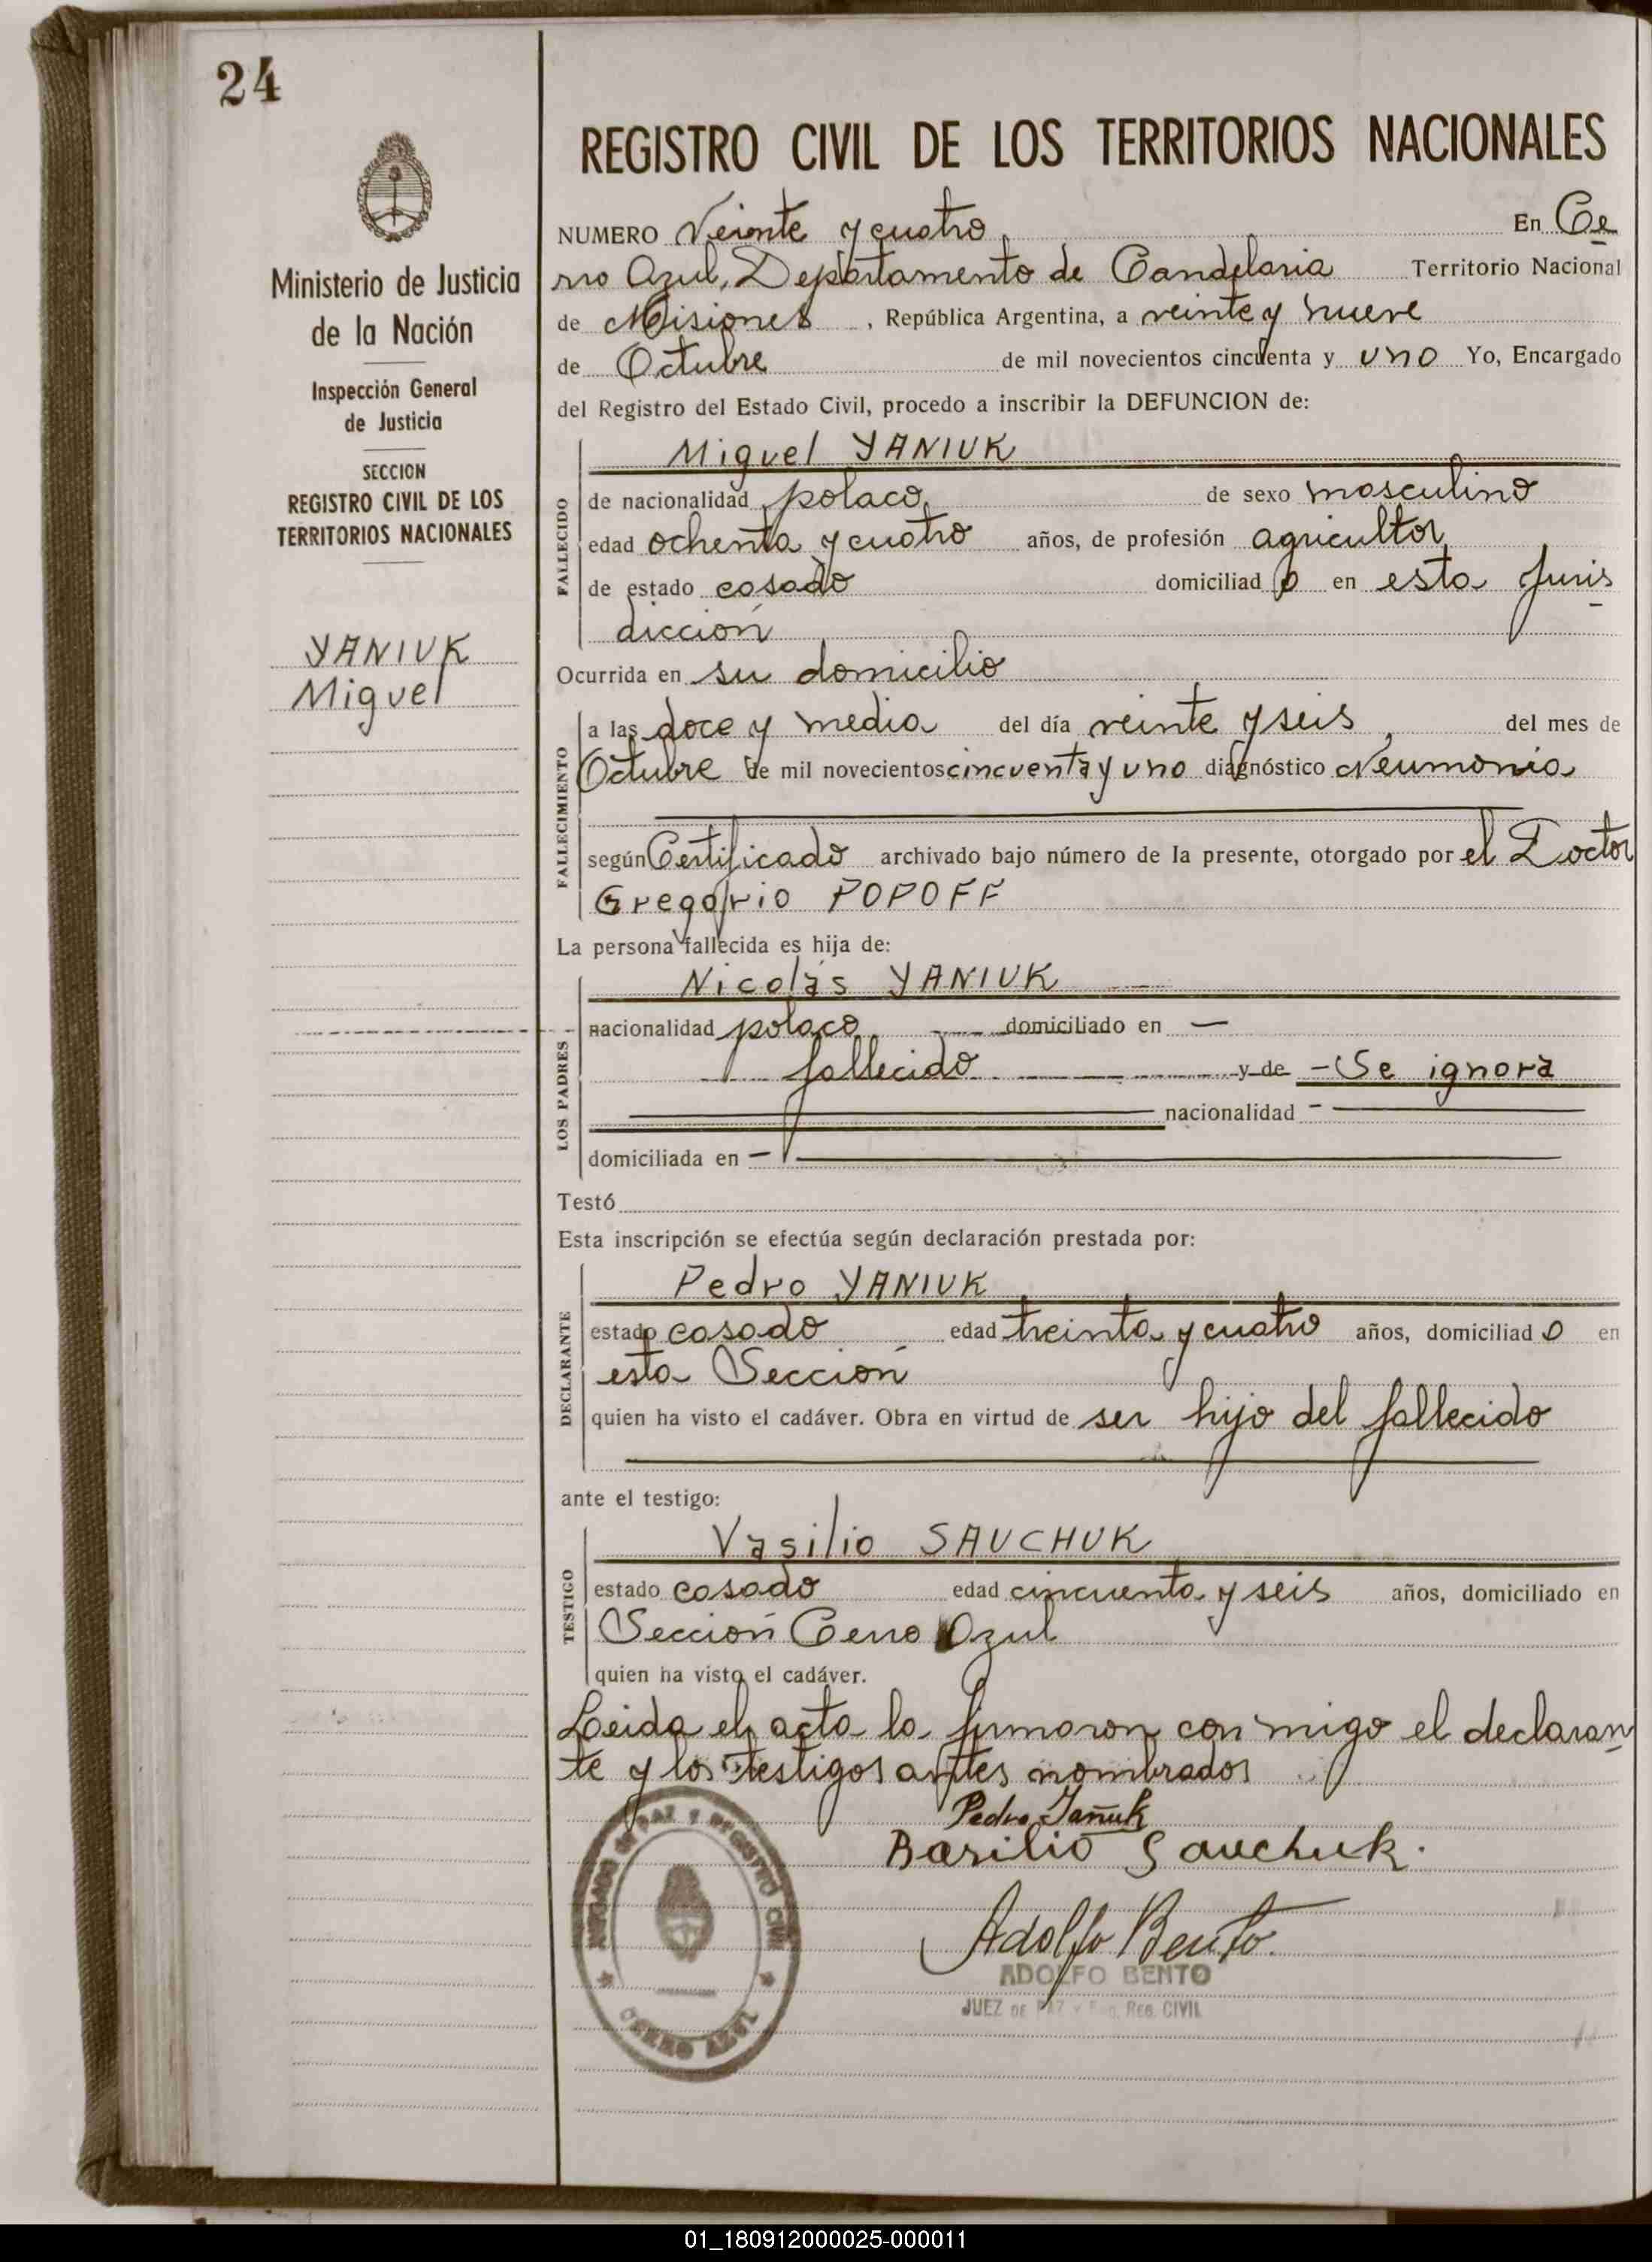 24
Ministerio de Justicia
de la Nación
Inspección General
de Justicia
SECCION
REGISTRO CIVIL DE LOS
TERRITORIOS NACIONALES
YANIUK
Miguel
REGISTRO CIVIL DE LOS TERRITORIOS NACIONALES
NUMERO Veinte y cuatro En Ce
rro Azul, Departamento de Candelaria Territorio Nacional
de Misiones, República Argentina, a veinte y nueve
de Octubre de mil novecientos cincuenta y uno Yo, Encargado
del Registro del Estado Civil, procedo a inscribir la DEFUNCION de:
FALLECIDO
Miguel YANIUK
de nacionalidad polaco de sexo masculino
edad ochenta y cuatro años, de profesión agricultor
de estado casado domiciliad o en esta Juris
dicción
Ocurrida en su domicilio
FALLECIMIENTO
a las doce y media del día veinte y seis, del mes de
Octubre de mil novecientos cincuenta y uno diagnóstico Neumonia
según Certificado archivado bajo número de la presente, otorgado por el Doctor
Gregorio POPOFF
La persona fallecida es hija de:
LOS PADRES
Nicolás YANIUK
nacionalidad polaco domiciliado en —
fallecido y de - Se ignora
nacionalidad -
domiciliada en -
Testó
Esta inscripción se efectúa según declaración prestada por:
DECLARANTE
Pedro YANIUK
estado casado edad treinta y cuatro años, domiciliad o en
esta Sección
quien ha visto el cadáver. Obra en virtud de ser hijo del fallecido
ante el testigo:
TESTIGO
Vasilio SAUCHUK
estado casado edad cincuenta y seis años, domiciliado en
Sección Cerro Azul
quien ha visto el cadáver.
Leida el acta la firmaron con migo el declaran
te y los testigos antes nombrados
Pedro Jañuk
Basilio Sauchuk.
Adolfo Bento.
ADOLFO BENTO
JUEZ DE PAZ Y Enc. REG. CIVIL
JUZGADO DE PAZ Y REGISTRO CIVIL
CERRO AZUL
01_180912000025-000011